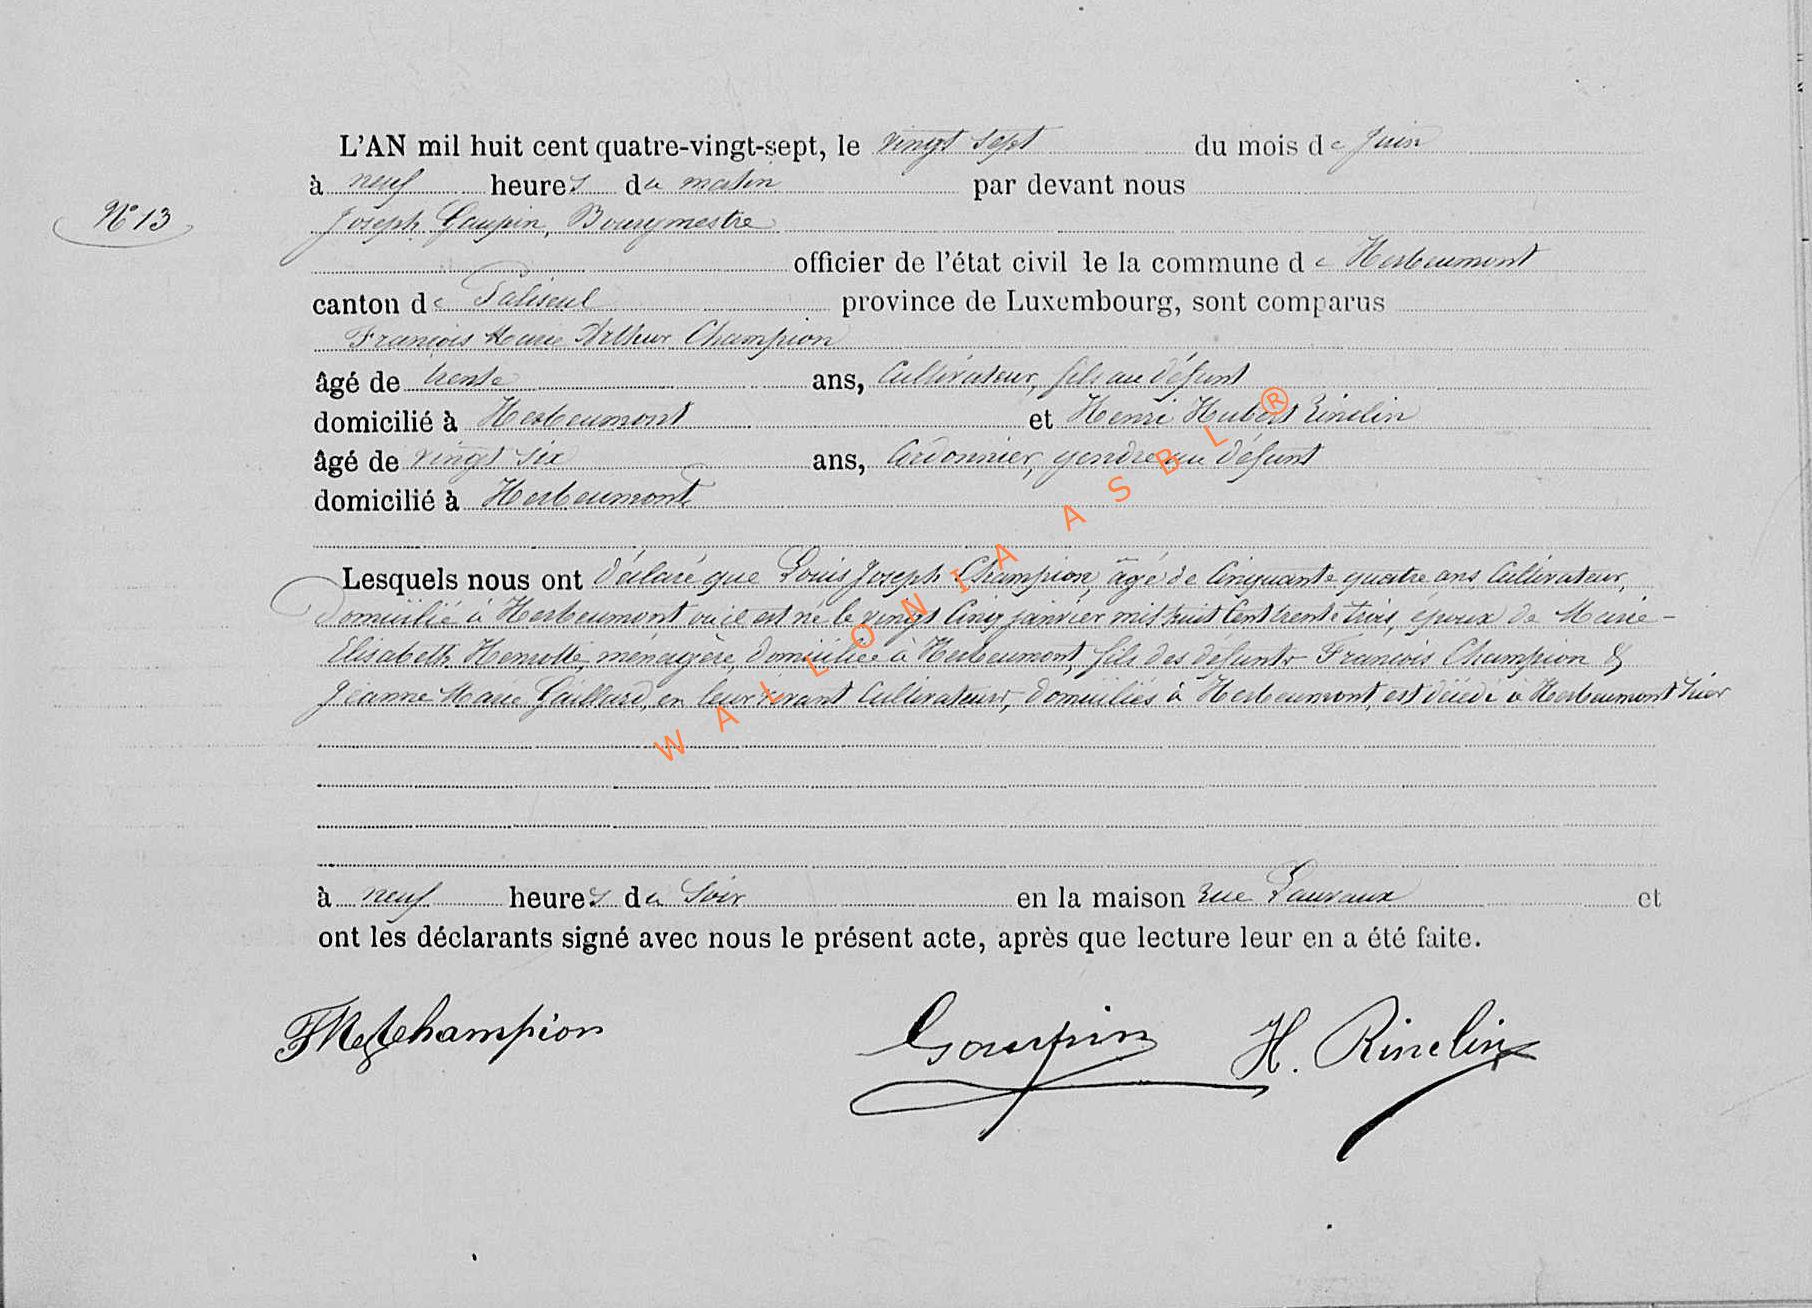 L'AN mil huit cent quatre-vingt-sept, le vingt sept du mois de Juin
à neuf heures du matin par devant nous
N° 13
Joseph Gaupin, Bourgmestre
officier de l'état civil de la commune de Herbeumont
canton de Paliseul province de Luxembourg, sont comparus
François Marie Arthur Champion
âgé de trente ans, Cultivateur, fils au défunt
domicilié à Herbeumont et Henri Hubert Rinclin
âgé de vingt six ans, Cordonnier, gendre au défunt
domicilié à Herbeumont
Lesquels nous ont déclaré que Louis Joseph Champion, âgé de Cinquante quatre ans Cultivateur,
domicilié à Herbeumont où il est né le vingt Cinq janvier mil huit Cent trente trois, époux de Marie-
Elisabeth Henrotte, ménagère, domiciliée à Herbeumont, fils des défunts François Champion &
Jeanne Marie Gaillard, en leur vivant Cultivateurs, domiciliés à Herbeumont, est décédé à Herbeumont hier
à neuf heures du Soir en la maison rue Lauvaux et
ont les déclarants signé avec nous le présent acte, après que lecture leur en a été faite.
Champion Gaupin H. Rinclin
WALLONIA ASBL ®